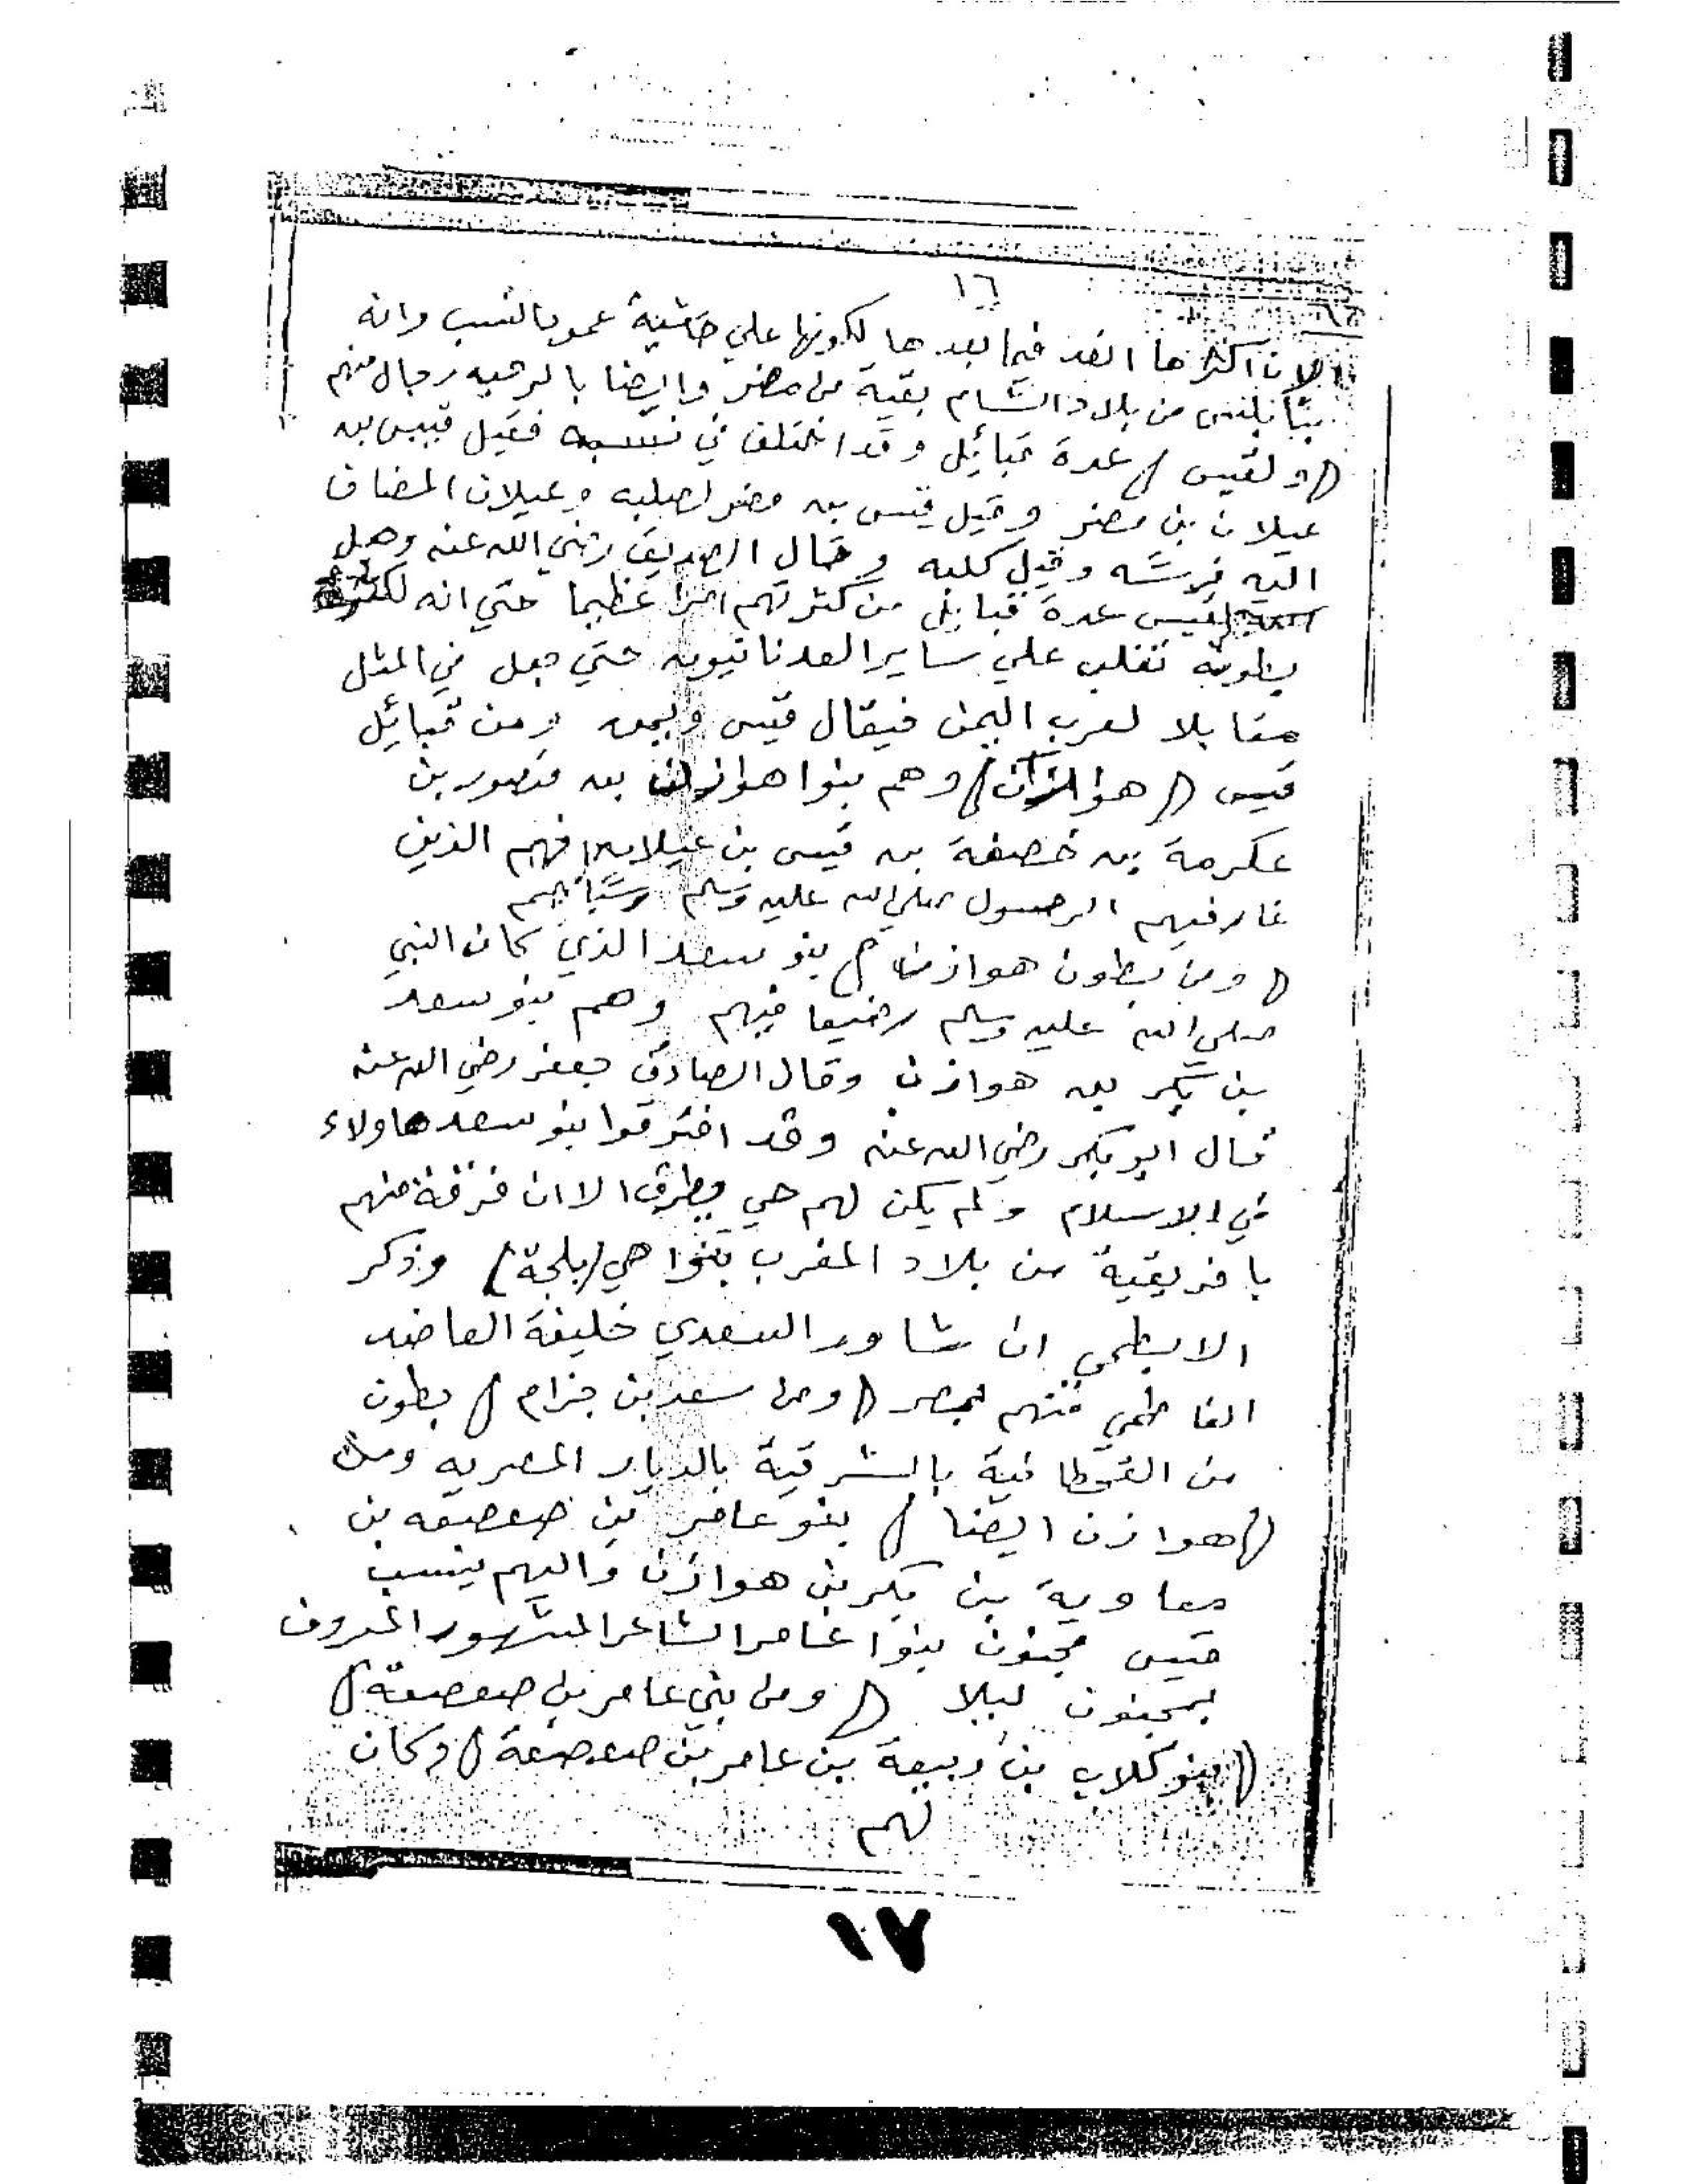 ١٦
لان اكثرها انفد فيما بعدها لكونها علي حاشية عمود النسب وانه
بنابلس من بلاد الشام بقية من مضر وايضا بالرحبه رجال منهم
(ولقيس) عدة قبائل وقد اختلف في نسبه فقيل قيس بن
عيلان بن مضر وقيل قيس بن مضر لصلبه وعيلان المضاف
اليه فرسه وقيل كلبه وقال الصديق رضي الله عنه وهل
لقيس عدة قبايل من كثرتهم امرا عظيما حتي انه لكثرة
بطونه تغلب علي ساير العدنانيون حتي جعل في المثل
مقابلا لعرب اليمن فيقال قيس ويمن ومن قبائل
قيس (هوازن) وهم بنوا هوازن بن منصور بن
عكرمة بن خصفة بن قيس بن عيلان فهم الذين
غار فيهم الرسول صلي الله عليه وسلم وسباهم
(ومن بطون هوازن) بنو سعد الذي كان النبي
صلي الله عليه وسلم رضيعا فيهم وهم بنو سعد
بن بكر بن هوازن وقال الصادق جعفر رضي الله عنه
قال ابو بكر رضي الله عنه وقد افترقوا بنو سعد هاولاء
في الاسلام ولم يكن لهم حي يطرق الا ان فرقة منهم
بافريقية من بلاد المغرب بنواحي (بلجة) وذكر
ان شاور السعدي خليفة العاضد
الفاطمي منهم بمصر (ومن سعد بن جزام) بطون
من القحطانية بالشرقية بالديار المصريه ومن
(هوازن ايضا) بنو عامر بن صعصعه بن
معاوية بن بكر بن هوازن واليهم ينسب
قيس مجنون بنوا عامر الشاعر المشهور المعروف
بمجنون ليلا (ومن بني عامر بن صعصعة)
(بنو كلاب بن ربيعة بن عامر بن صعصعة) وكان
لهم
١٧